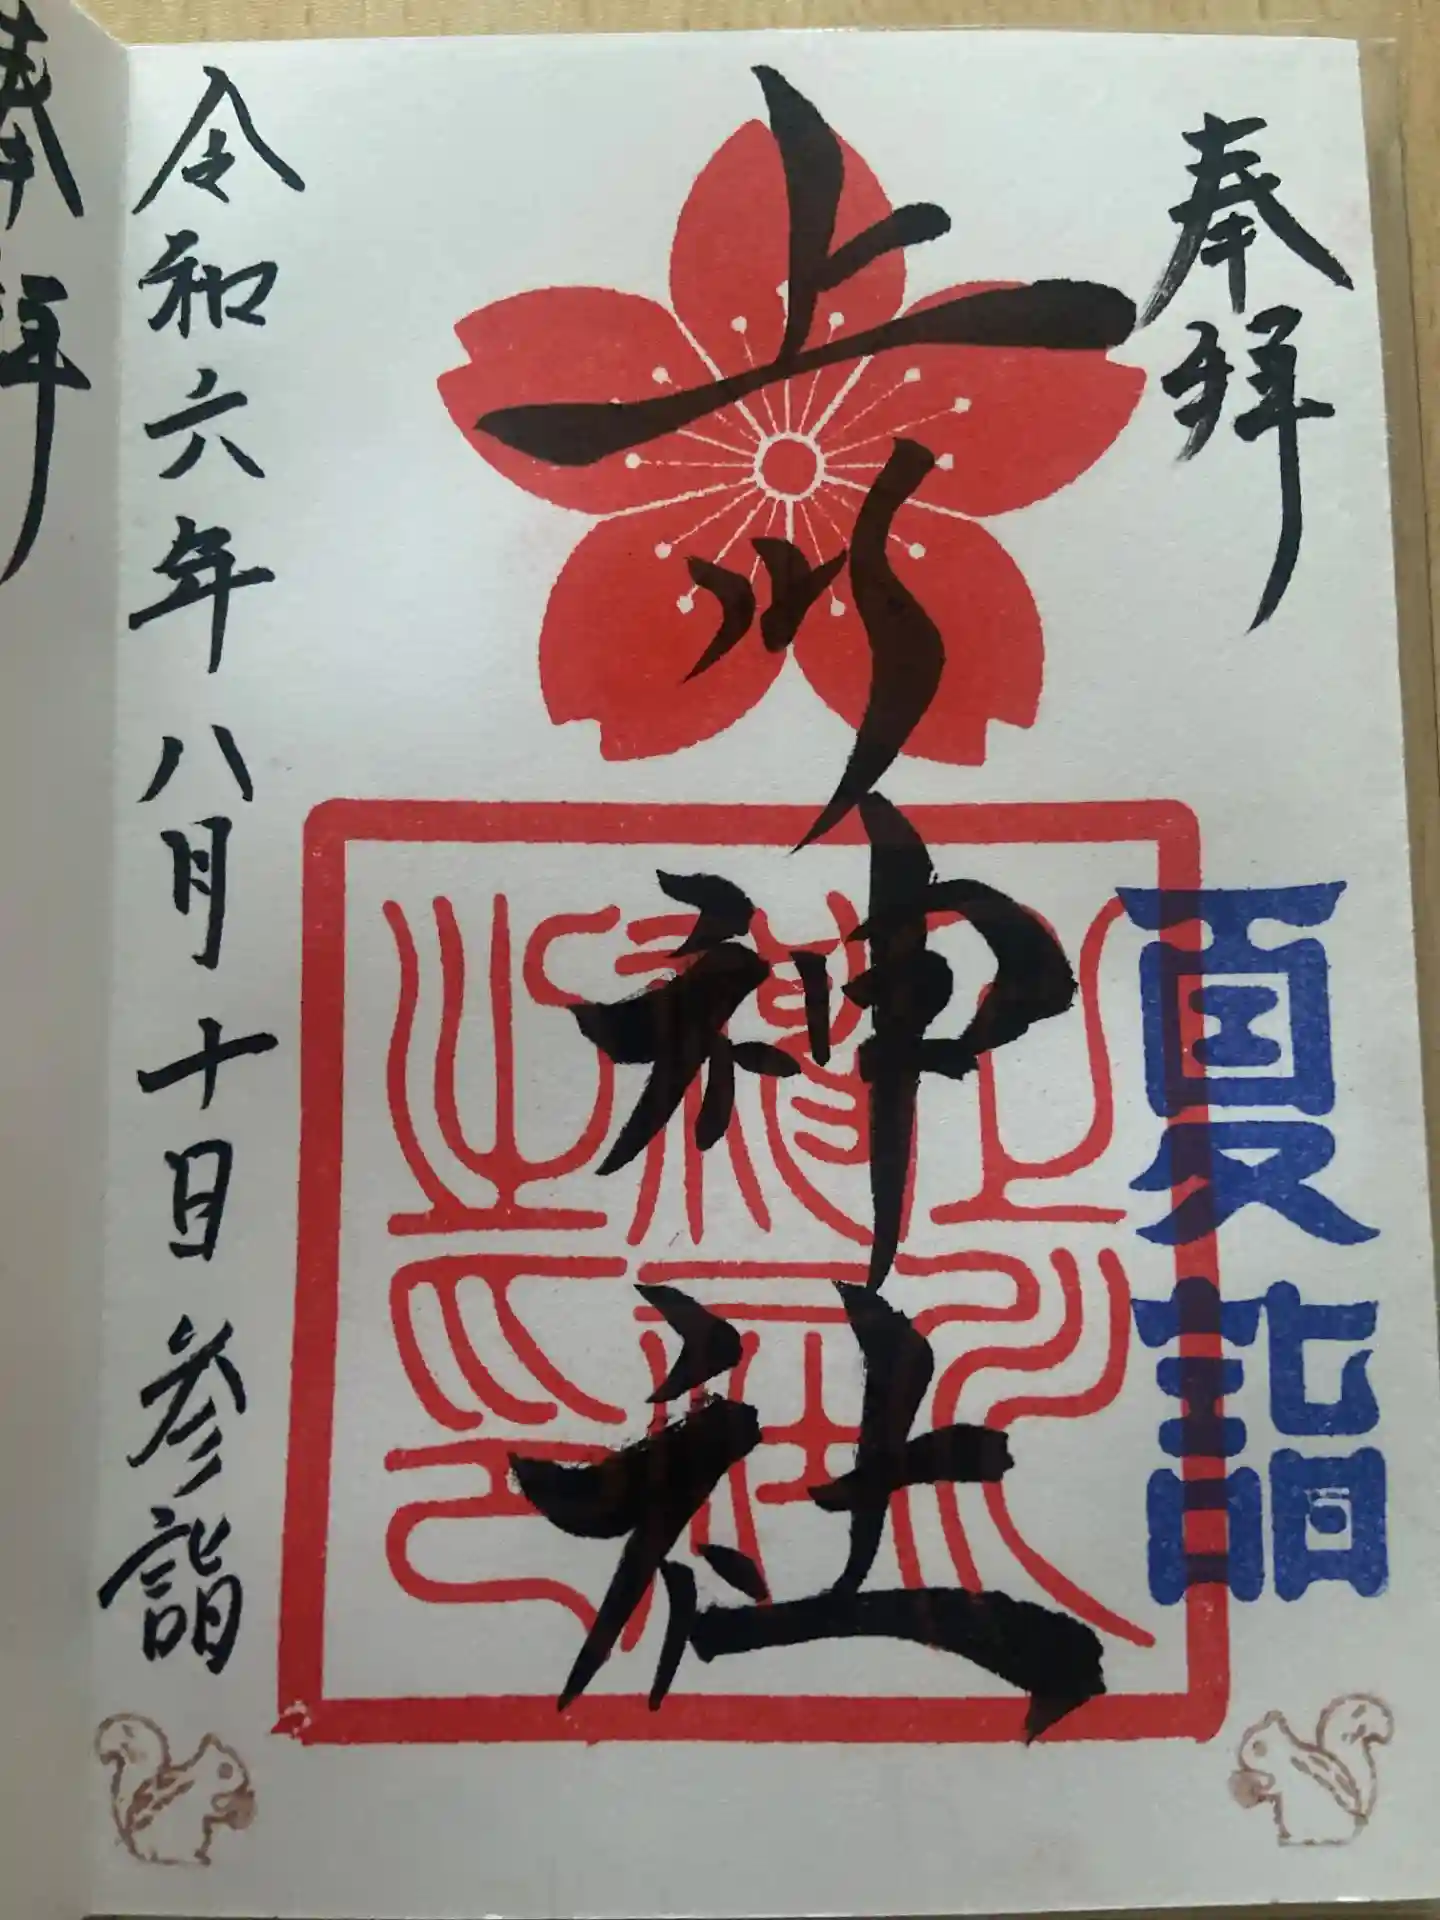 奉拝
夏詣
上川神社
上川神社之印
令和六年八月十日参詣
奉拝